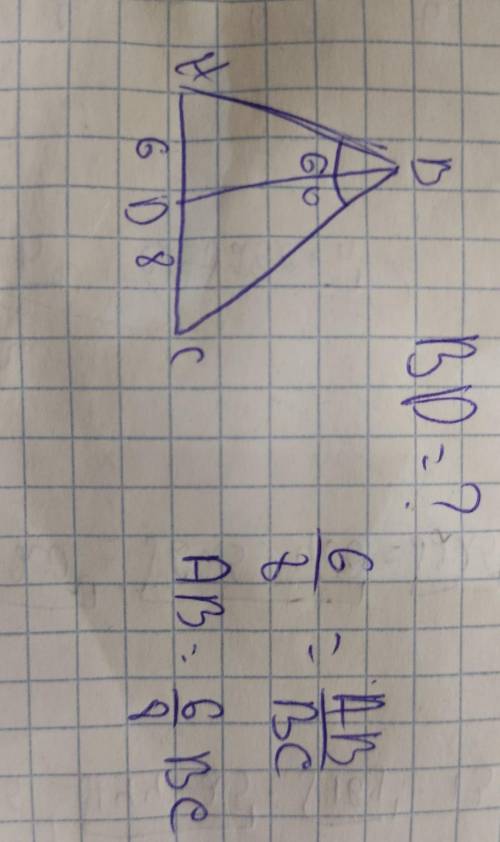 B
60
A 6 D 8 C
BD = ?
6/8 = AB/BC
AB = 6/8 BC